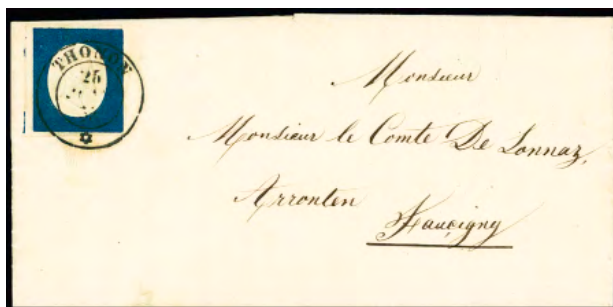 THONON
25
Monsieur
Monsieur le Comte De Sonnaz,
Arronten
Faucigny